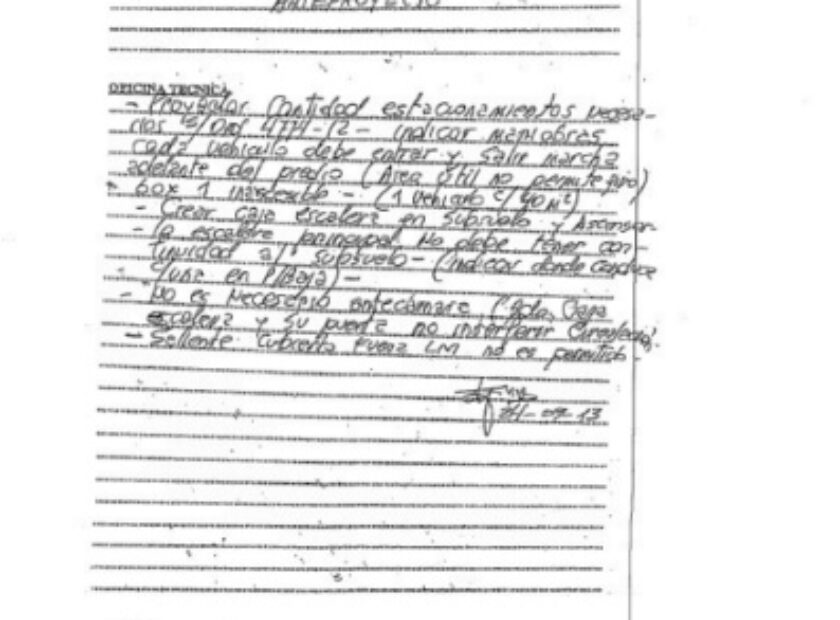 ANTEPROYECTO
OFICINA TECNICA
- Proyectar Cantidad estacionamientos necesa-
rios s/Ord 4774-12 - indicar maniobras
cada vehiculo debe entrar y salir marcha
adelante del predio (Area útil no permite giro)
- box 1 inaccesible - (1 vehiculo c/40 m²)
- Crear caja escalera en subsuelo y Ascensor
- la escalera principal No debe tener con-
tinuidad al subsuelo - (indicar donde conduce
una en P/Baja) -
- No es necesario antecámara, Caja
escalera y su puerta no interferir Circulación
- Saliente Cubierta fuera LM no es permitido -
24-09-13